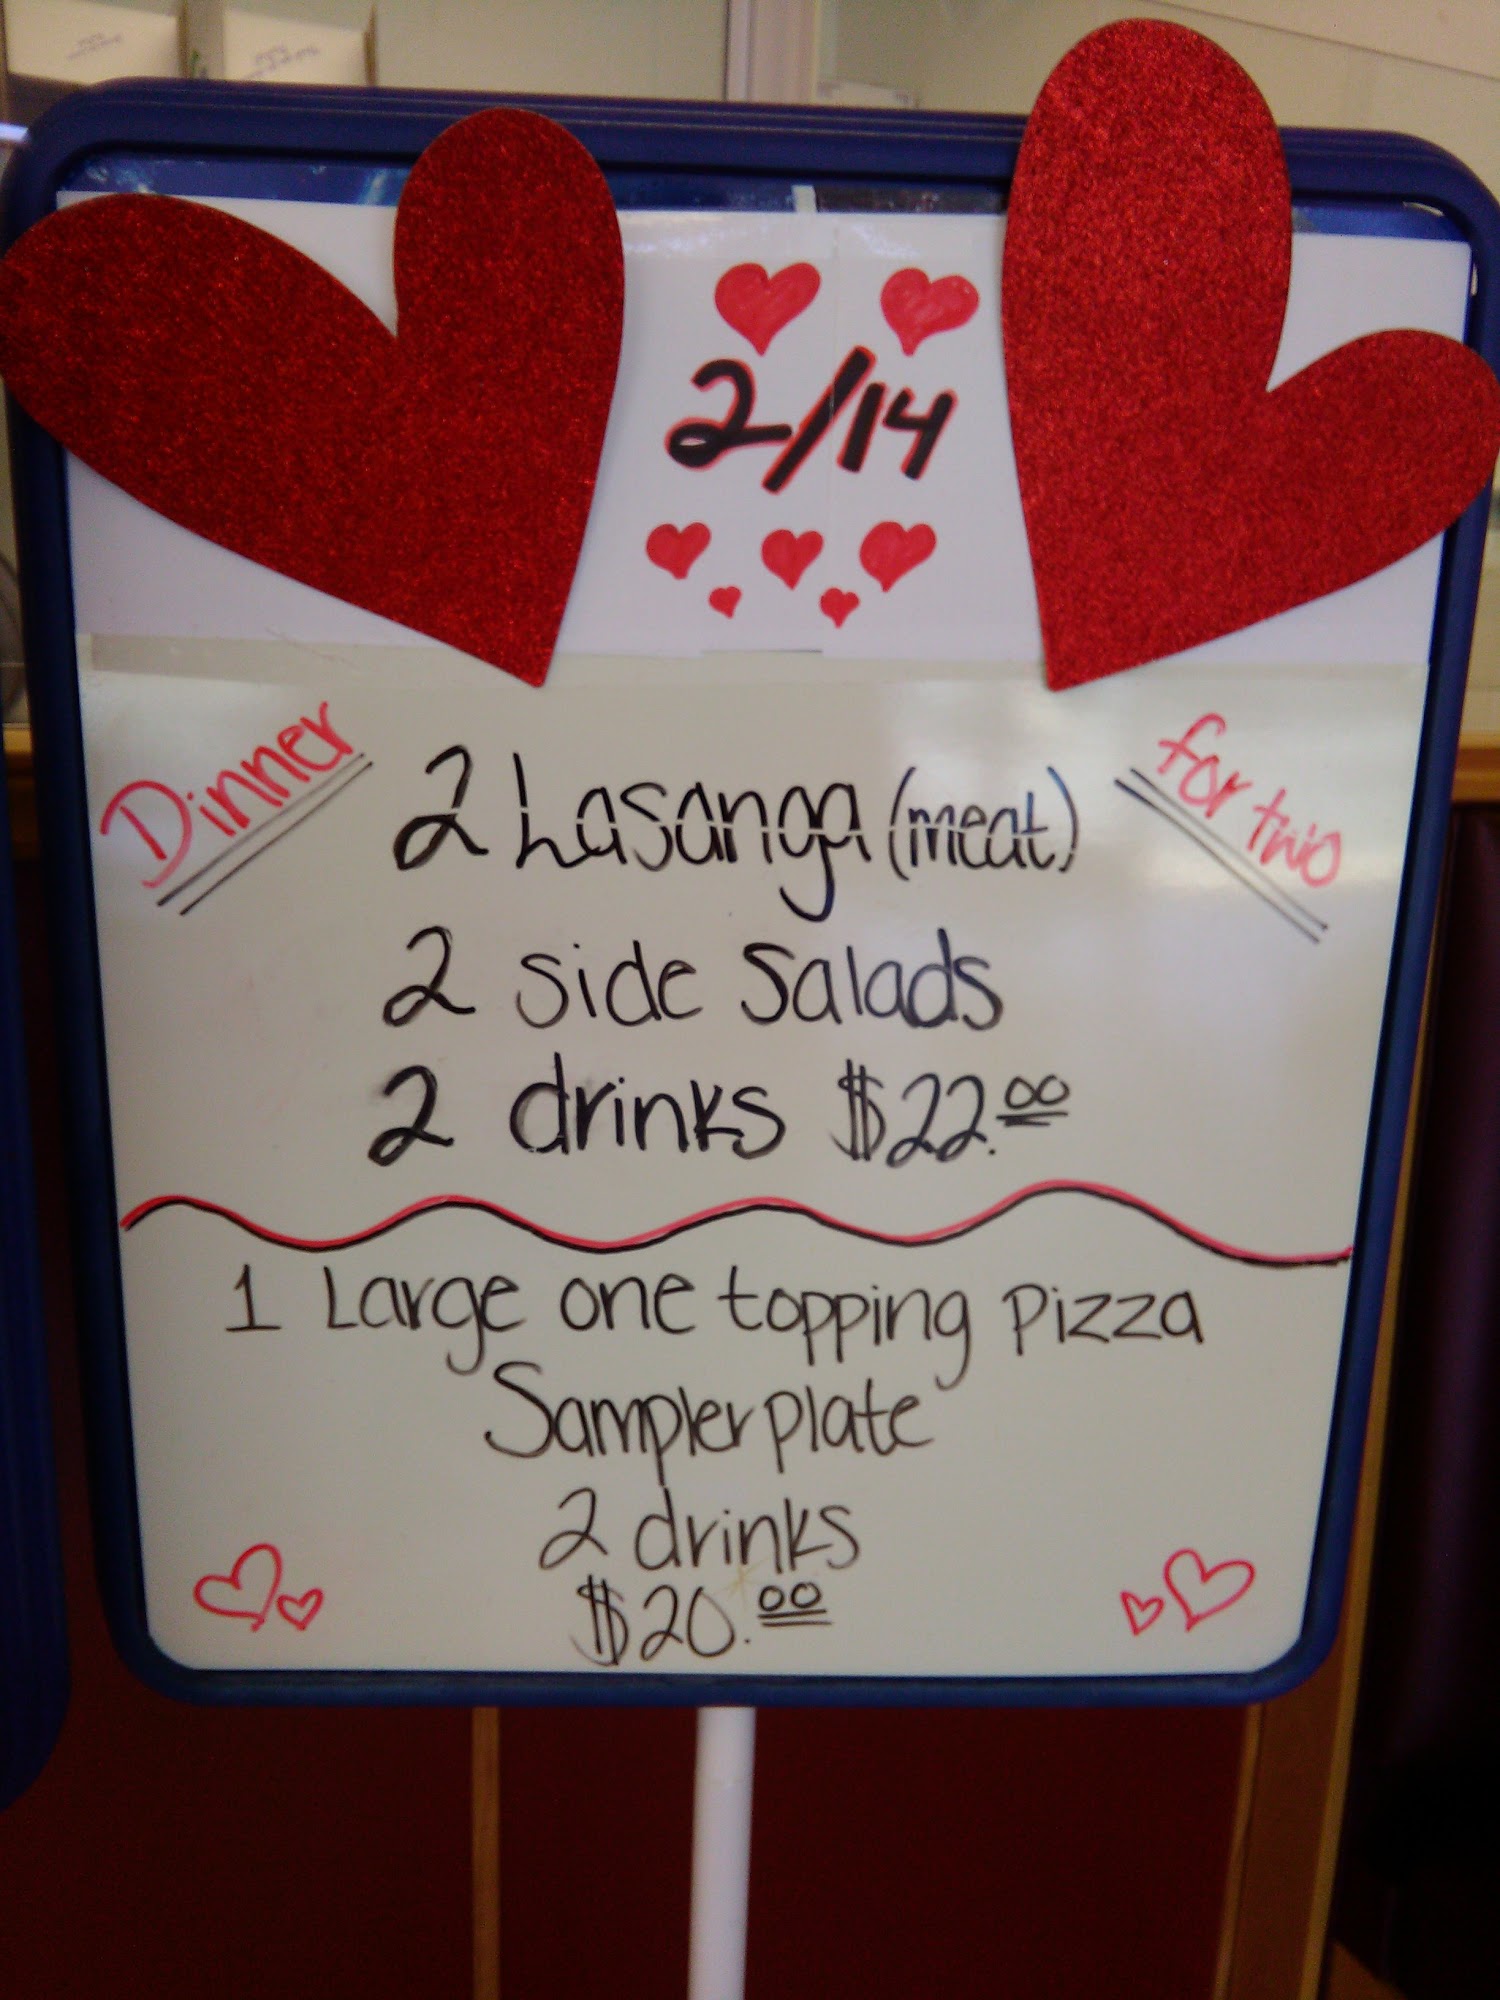 2/14
Dinner
for two
2 Lasanga (meat)
2 side Salads
2 drinks $22.00
1 Large one topping pizza
Sampler plate
2 drinks
$20.00